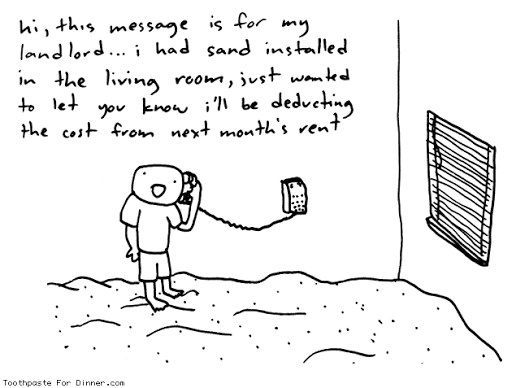 hi, this message is for my
landlord... i had sand installed
in the living room, just wanted
to let you know i'll be deducting
the cost from next month's rent
Toothpaste For Dinner.com